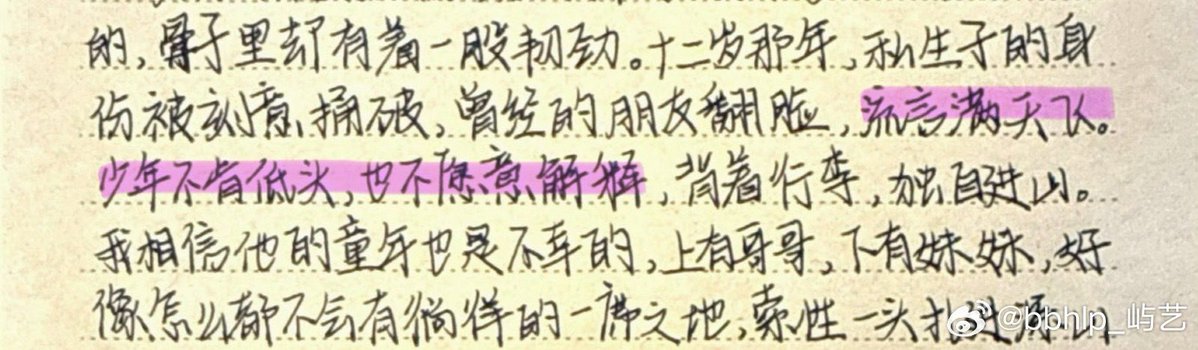 的,骨子里却有着一股韧劲。十二岁那年,私生子的身
份被刻意捅破,曾经的朋友翻脸,流言满天飞。
少年不肯低头,也不愿意解释,背着行李,独自进山。
我相信他的童年也是不幸的,上有哥哥,下有妹妹,好
像怎么都不会有徜徉的一席之地,索性一头扎进深山
@bbhlp_屿艺